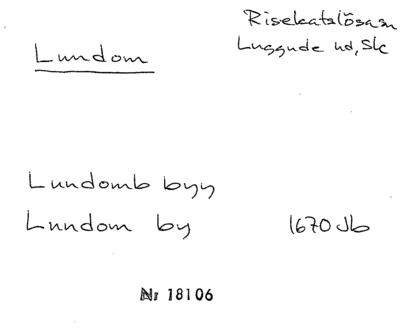 Lundom
Risekatslösasn
Luggude hd, Sk
Lundomb byy
Lundom by 1670 Jb
Nr 18106